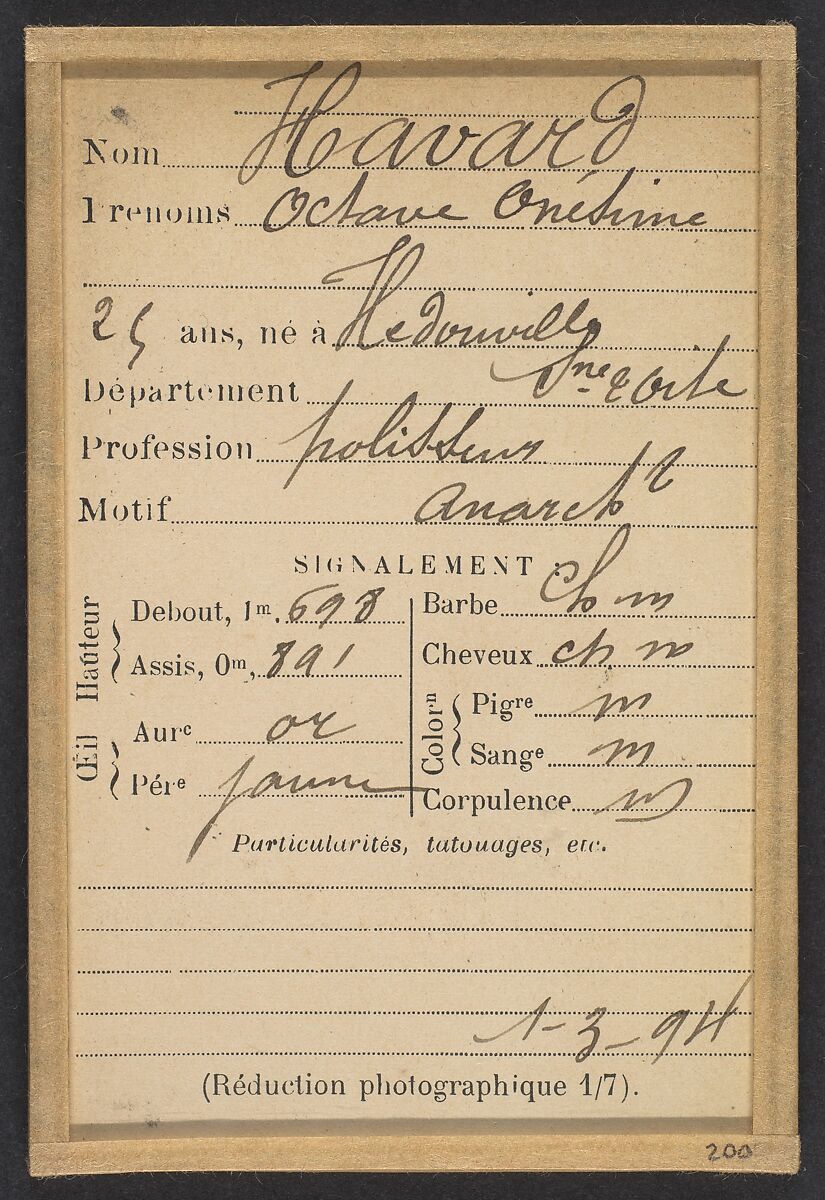 Nom Havard
Prénoms Octave Onésime
25 ans, né à Hédouville
Département Sne & Oise
Profession polisseur
Motif anarch
SIGNALEMENT :
Hauteur
Debout, 1m. 698
Assis, 0m, 891
Œil
Aurc or
Pére jaune
Barbe ch m
Cheveux ch m
Colorn
Pigre m
Sange m
Corpulence m
Particularités, tatouages, etc.
1-3-94
(Réduction photographique 1/7).
200